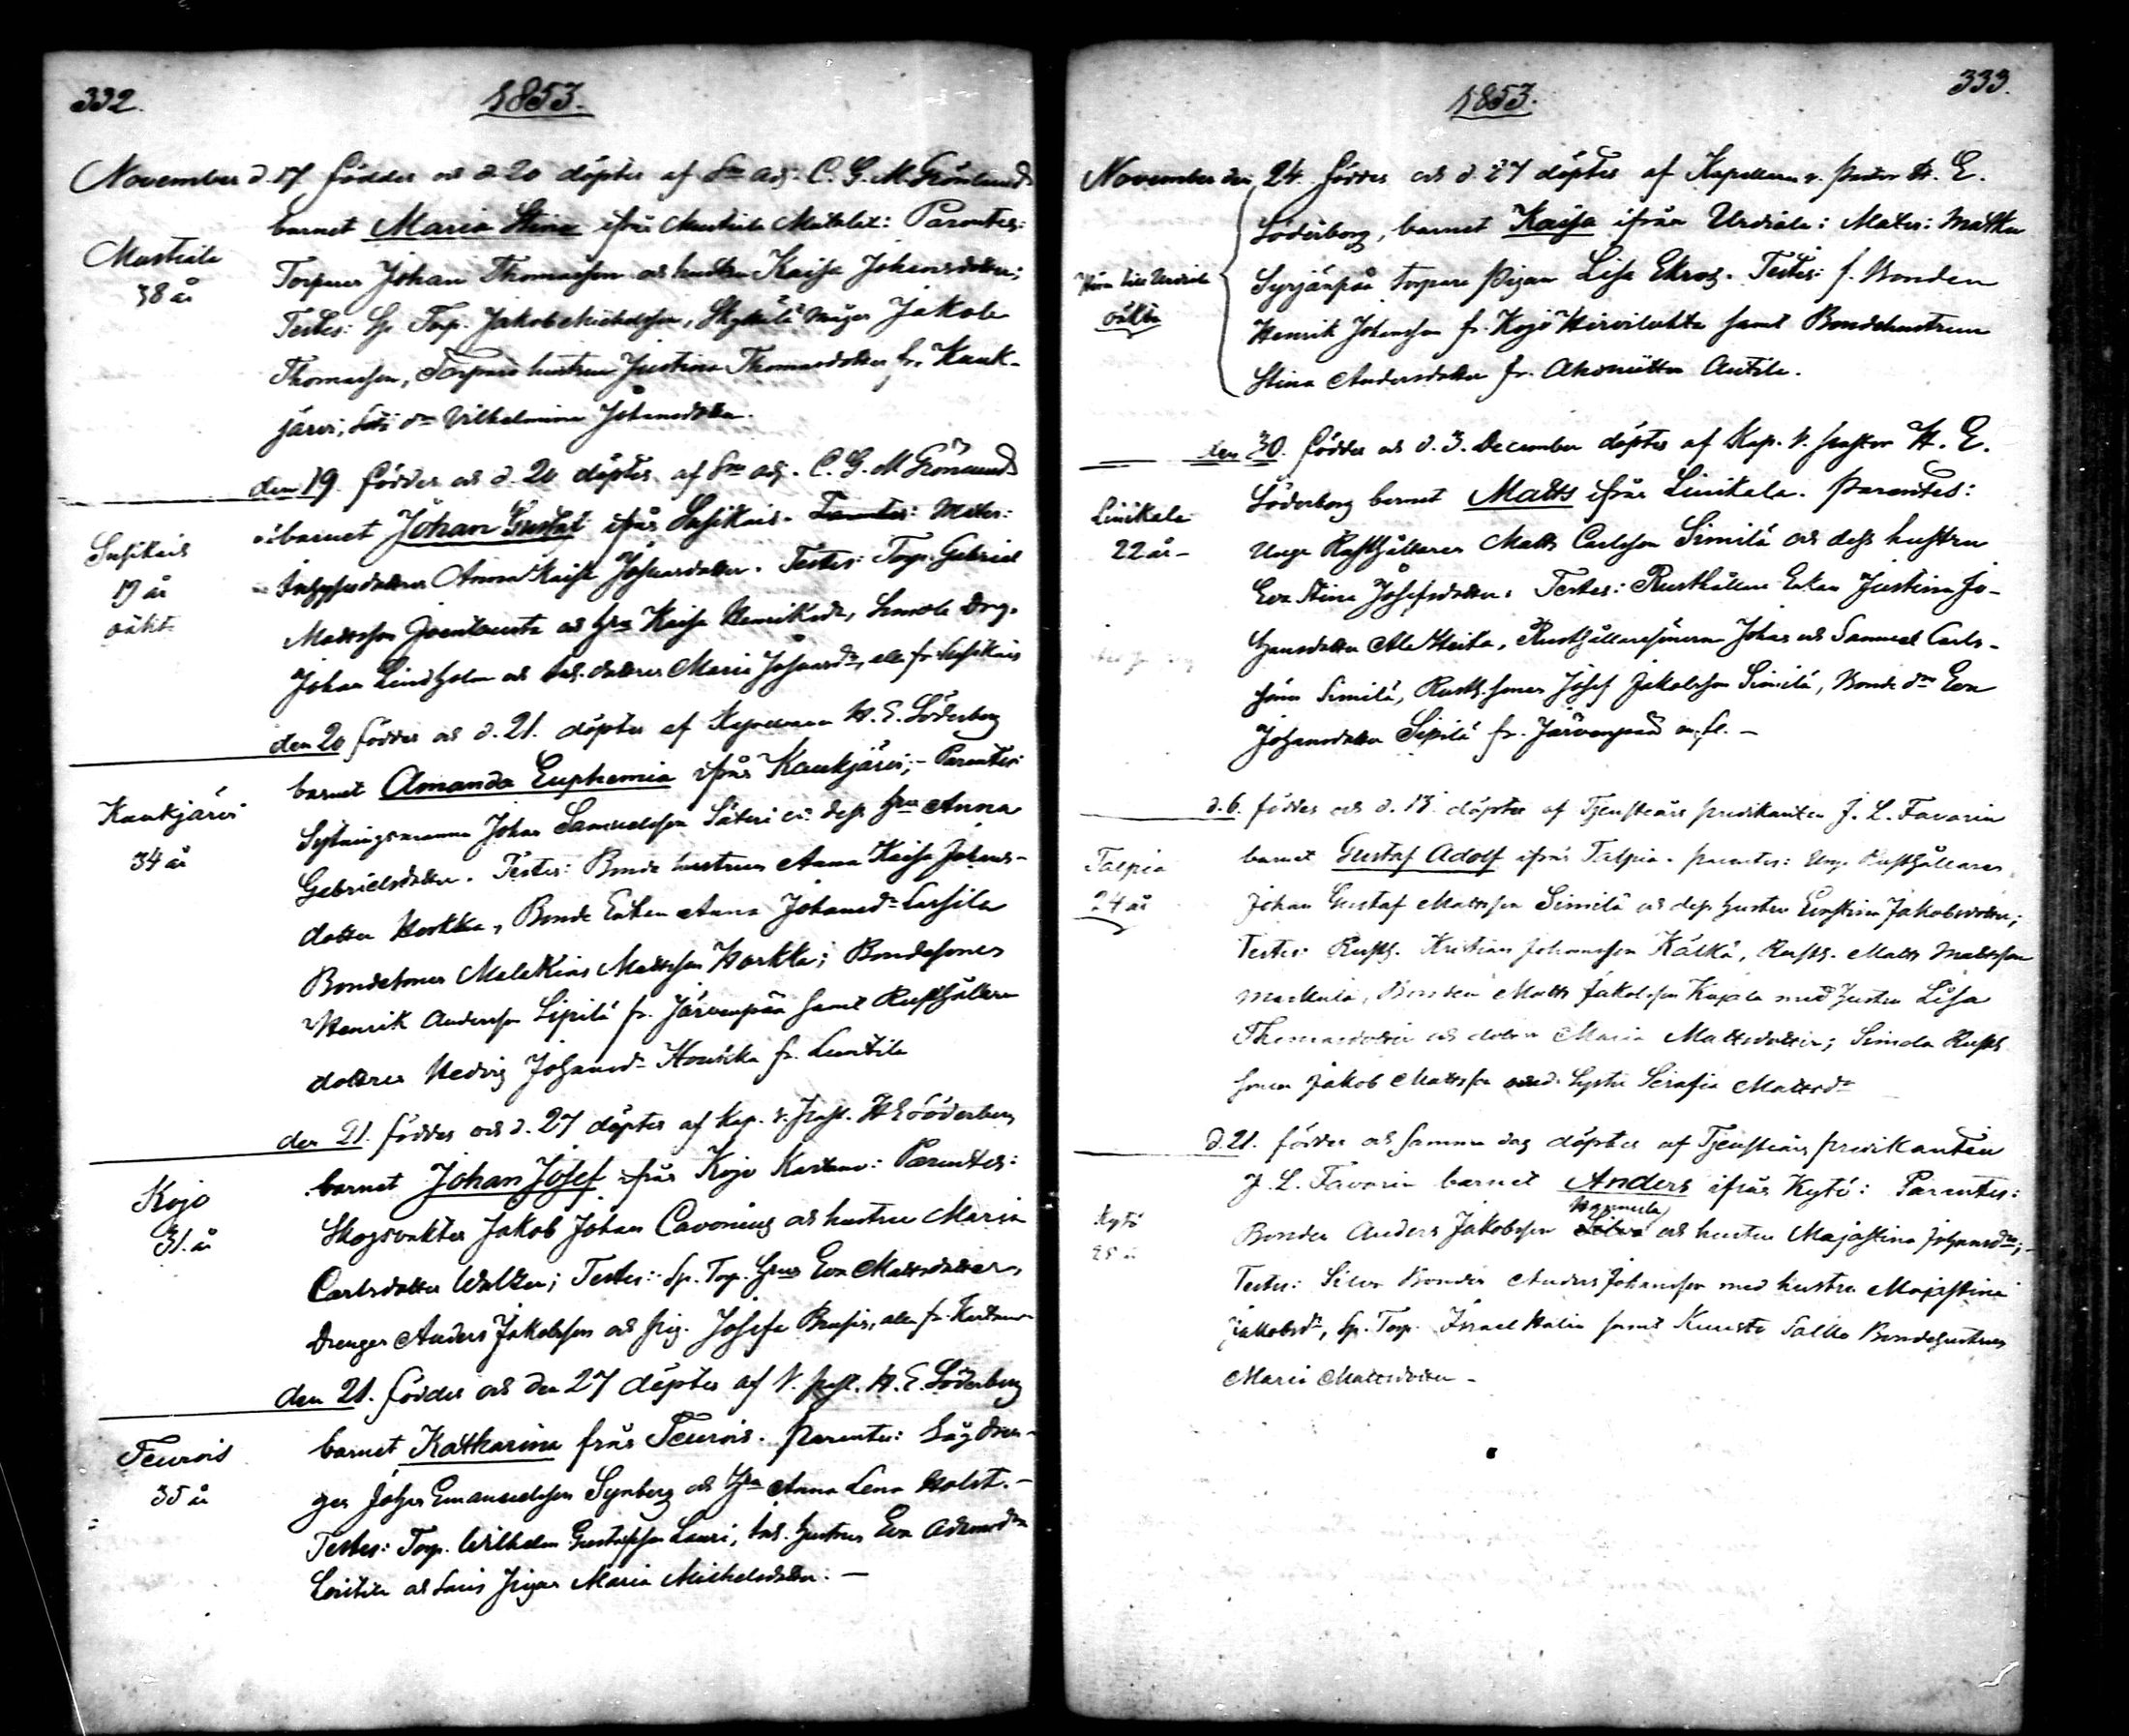 332.
1853.
November d. 17. föddes och d. 20 döptes af Sn adj. C. G. M. Grönlund
barnet Maria Stina ifrån Mustiala: Parentes:
Mustiala
38 år
Torparen Johan Thomasson och hustru Kaisa Johansdotter;
Testes: Sp. Torp. Jakob Michelsson, Jakob
Thomasson, Torpare hustrun Justina Thomasdotter fr. Kauk-
järvi, Vilhelmina Johansdotter.
den 19. föddes och d. 20 döptes af Sn adj. C. G. M. Grönlund
oä: barnet Johan Gustaf ifrån Susikais. Mater:
Susikais
19 år
oäkt.
Inhysesdottren Anna Kaisa Johansdotter. Testes: Torp. Gabriel
Mattsson och hru Kaisa Henriksdr, Drng.
Johan Lindholm och Inh. dottren Maria Johansdr, alla fr. Susikais
den 20 föddes och d. 21. döptes af Kapellanen H. E. Söderborg
barnet Amanda Euphemia ifrån Kaukjärvi; - Parentes:
Kaukjärvi
34 år
Sytningsmannen Johan Samuelsson Säteri och dess hru Anna
Gabrielsdotter. Testes: Bonde hustrun Anna Kaisa Johans-
dotter Horkka, Bonde Enkan Anna Johansdr Lassila
Bondesonen Melekias Mattsson Horkka; Bondesonen
Henrik Andersson Sipilä fr. Järvenpää samt Rusthållare
dottren Hedvig Johansdr fr. Luntila
den 21. föddes och d. 27 döptes af Kap. v. past. H E Söderborg
barnet Johan Josef ifrån Kojo Kartano: Parentes:
Kojo
31 år
Skogsvakten Jakob Johan Cavonius och hustru Maria
Carlsdotter Walzer; Testes: Sp. Torp. hru Eva Mattsdotter,
Drengen Anders Jakobsson och pig. Josefa alla fr. Kartano
den 21. föddes och den 27 döptes af V. past. H. E. Söderborg
barnet Katharina från Teurois. Parentes: Lågdren-
Teurois
35 år
gen Johan Emanuelsson Synberg och hru Anna Lena Holst. -
Testes: Torp. Wilhelm Gustafsson Lauri, Inh. hustrun Eva Adamsdr
och pigan Maria Michelsdotter. -
1853.
333.
November den 24. föddes och d. 27 döptes af Kapellanen v. Pastor H. E.
Söderborg, barnet Kaisa ifrån Urdiala: Mater: Matku
Hörer till Urdiala
oäkta
Syrjänpää torpare Pigan Lisa Ekroos. Testes: f. Bonden
Henrik Johansson fr. Kojo Hirvilahti samt Bondehustrun
Stina Andersdotter fr. Antila.
den 30. föddes och d. 3. December döptes af Kap. V. pastor H. E.
Söderborg barnet Matts ifrån Linikala. Parentes:
Linikala
22 år -
Unge Rusthållaren Matts Carlsson Simila och dess hustru
Eva Stina Josefsdotter. Testes: Rusthållare Enkan Justina Jo-
hansdotter Ala Heika, Rusthållaresönerna Johan och Samuel Carls-
söner Similä, Rusth. sonen Josef Jakobsson Similä, Bonde dr Eva
Johansdotter Sipilä fr. Järvenpää m. fl. -
d. 6. föddes och d. 13. döptes af Tjensteårs predikanten J. L. Favorin
barnet Gustaf Adolf ifrån Talpia. Parentes: Unge Rusthållaren
Talpia
24 år
Johan Gustaf Mattsson Similä och dess hustru Eva Stina Jakobsdotter;
Testes: Rusth. Kristian Johansson Kälkä, Rusth. Matts Mattsson
Markula, Bonden Matts Jakobsson Kujala med hustru Lisa
Thomasdotter och dotter Maria Mattsdotter; Simola Rusth.
sonen Jakob Mattsson med Syster Serafia Mattsdr
d. 21. föddes och samma dag döptes af Tjensteårs predikanten
J. L. Favorin barnet Anders ifrån Kytö: Parentes:
Kytö
Bonden Anders Jakobsson och hustru Maja Stina Johansdr; -
Testes: Bonden Anders Johansson med hustru Maja Stina
Jakobsdr, Sp. Torp. Israel samt Kuusto Bondehustrun
Maria Mattsdotter -